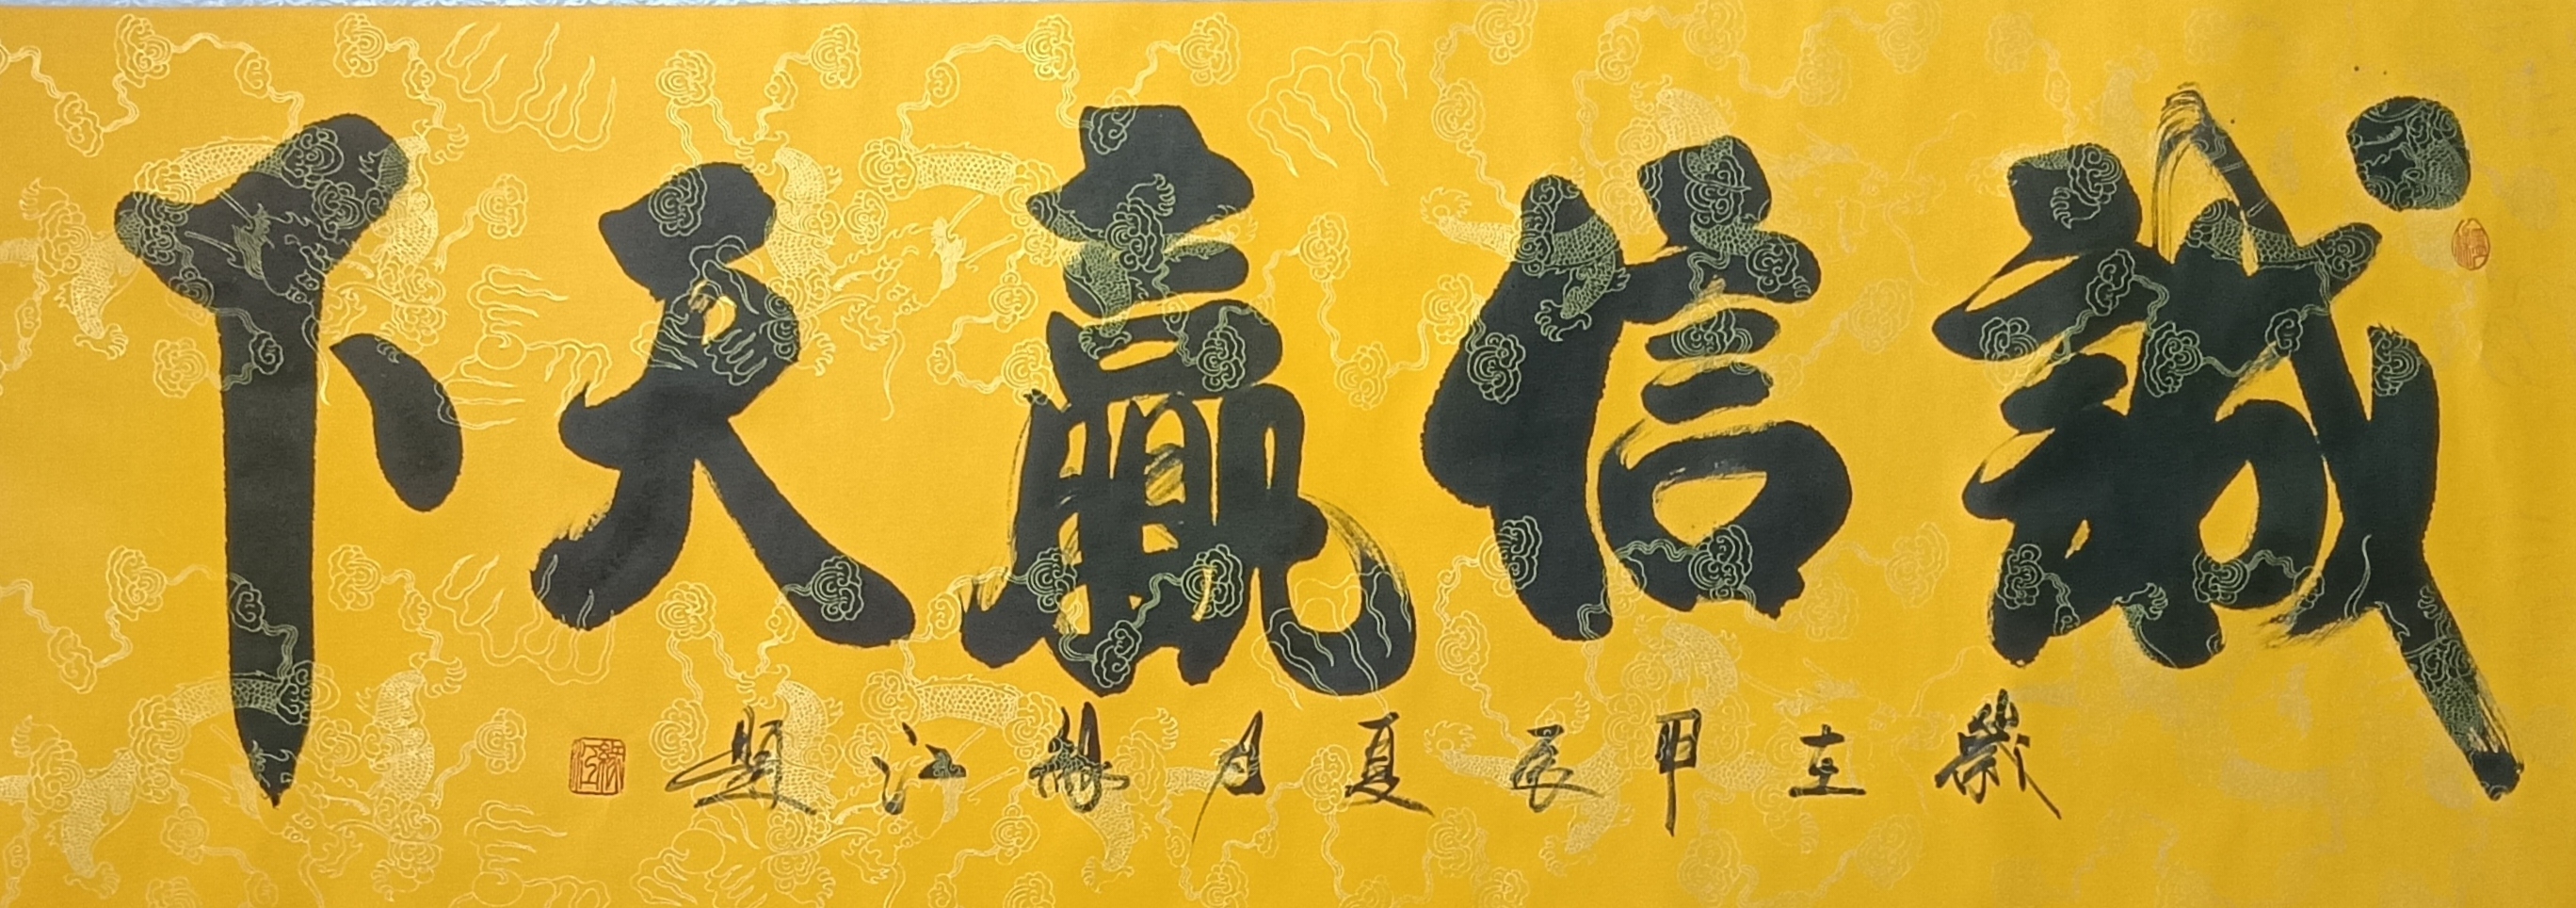 誠信贏天下
歲在甲辰夏月 江題